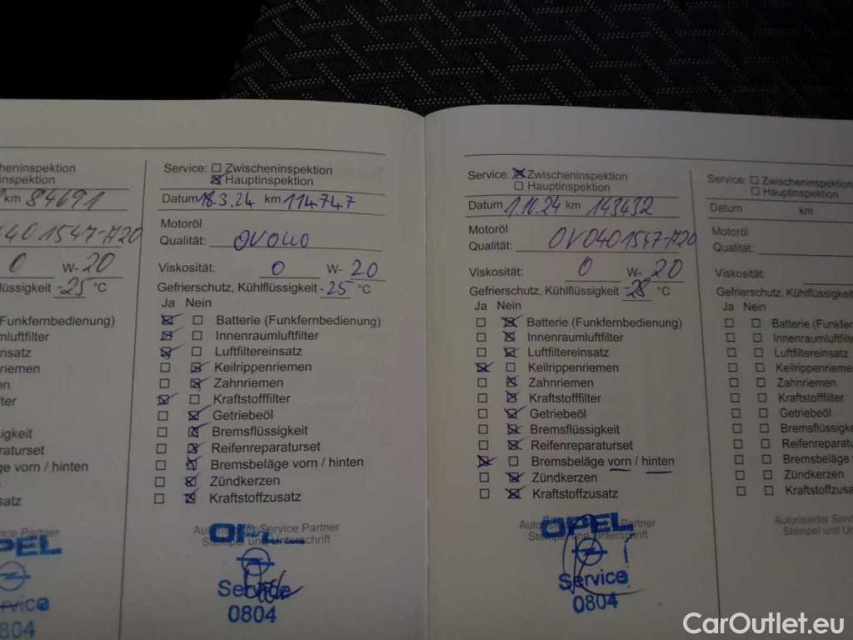 heninspektion
nspektion
km 84691
401547-A20
0 W-20
lüssigkeit -25 °C
Funkfernbedienung)
mluftfilter
nsatz
riemen
en
ter
igkeit
raturset
ge vorn / hinten
satz
Service: Zwischeninspektion
Hauptinspektion
Datum 18.3.24 km 114747
Motoröl
Qualität: OVO40
Viskosität: 0 W- 20
Gefrierschutz, Kühlflüssigkeit -25 °C
Ja Nein
Batterie (Funkfernbedienung)
Innenraumluftfilter
Luftfiltereinsatz
Keilrippenriemen
Zahnriemen
Kraftstofffilter
Getriebeöl
Bremsflüssigkeit
Reifenreparaturset
Bremsbeläge vorn / hinten
Zündkerzen
Kraftstoffzusatz
Service Partner
Stempel und Unterschrift
OPEL
Service
0804
Service: Zwischeninspektion
Hauptinspektion
Datum 1.10.24 km 143432
Motoröl
Qualität: OVO401547-A20
Viskosität: 0 W- 20
Gefrierschutz, Kühlflüssigkeit -28 °C
Ja Nein
Batterie (Funkfernbedienung)
Innenraumluftfilter
Luftfiltereinsatz
Keilrippenriemen
Zahnriemen
Kraftstofffilter
Getriebeöl
Bremsflüssigkeit
Reifenreparaturset
Bremsbeläge vorn / hinten
Zündkerzen
Kraftstoffzusatz
Partner
Stempel und Unterschrift
OPEL
Service
0804
Service: Zwischeninspektion
Hauptinspektion
Datum km
Motoröl
Qualität:
Viskosität:
Gefrierschutz, Kühlflüssigkeit
Ja Nein
Batterie (Funkfer
Innenraumluftfil
Luftfiltereinsatz
Keilrippenrieme
Zahnriemen
Kraftstofffilter
Getriebeöl
Bremsflüssigke
Reifenreparatu
Bremsbeläge
Zündkerzen
Kraftstoffzusatz
Autorisierter Servic
Stempel und Un
CarOutlet.eu